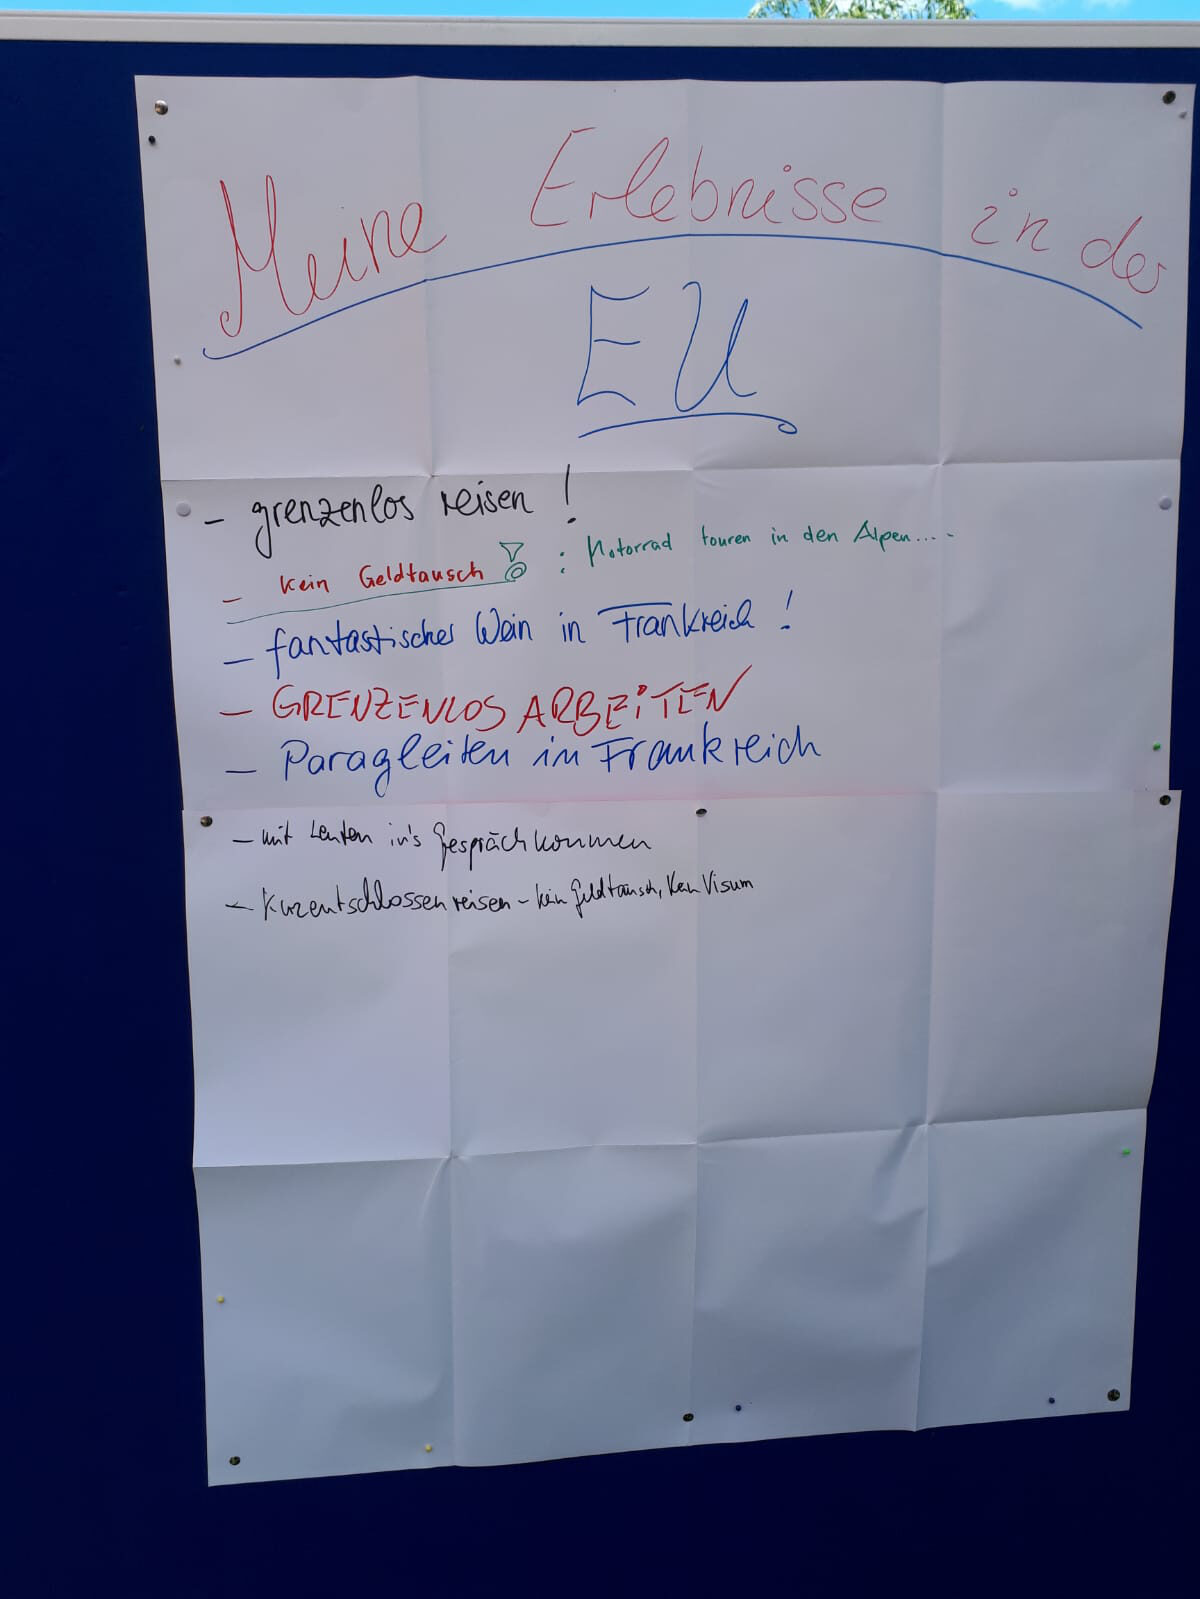 Meine Erlebnisse in der
EU
- grenzenlos reisen !
- kein Geldtausch ! : Motorrad touren in den Alpen....
- fantastischer Wein in Frankreich !
- GRENZENLOS ARBEiTEN
- Paragleiten in Frankreich
- mit Leuten in's Gespräch kommen
- Kurzentschlossen reisen - kein Geldtausch, kein Visum